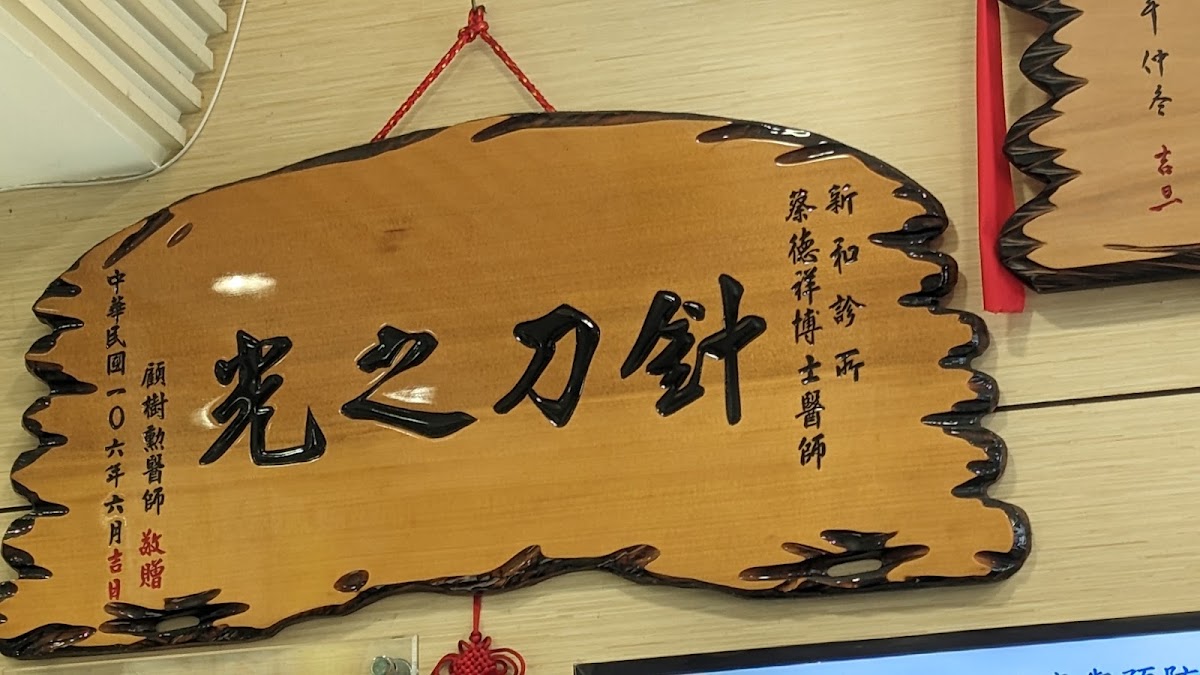 新和診所
蔡德祥博士醫師
針刀之光
顧樹勳醫師 敬贈
中華民国一〇六年六月吉日
年仲冬 吉旦